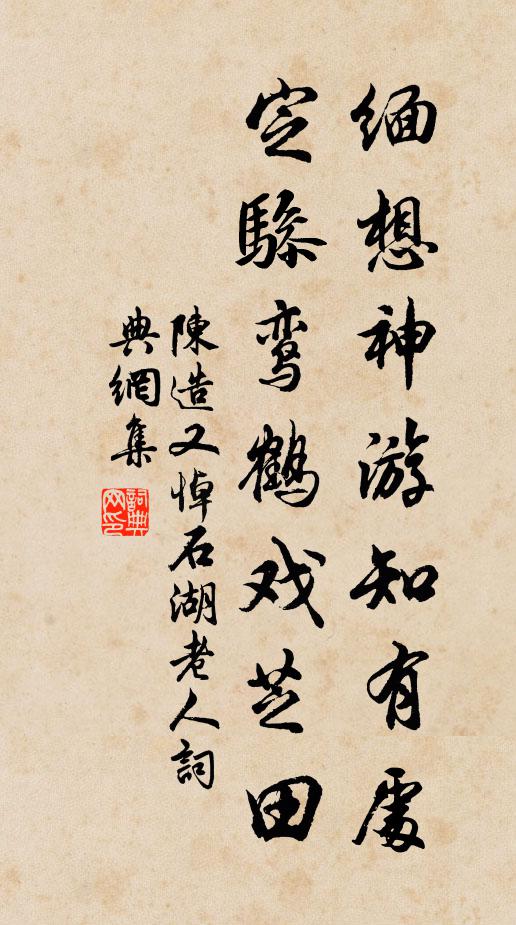 缅想神游知有處
定驂鸾鶴戏芝田
陳造又悼石湖老人詞
典網集
詞典网印